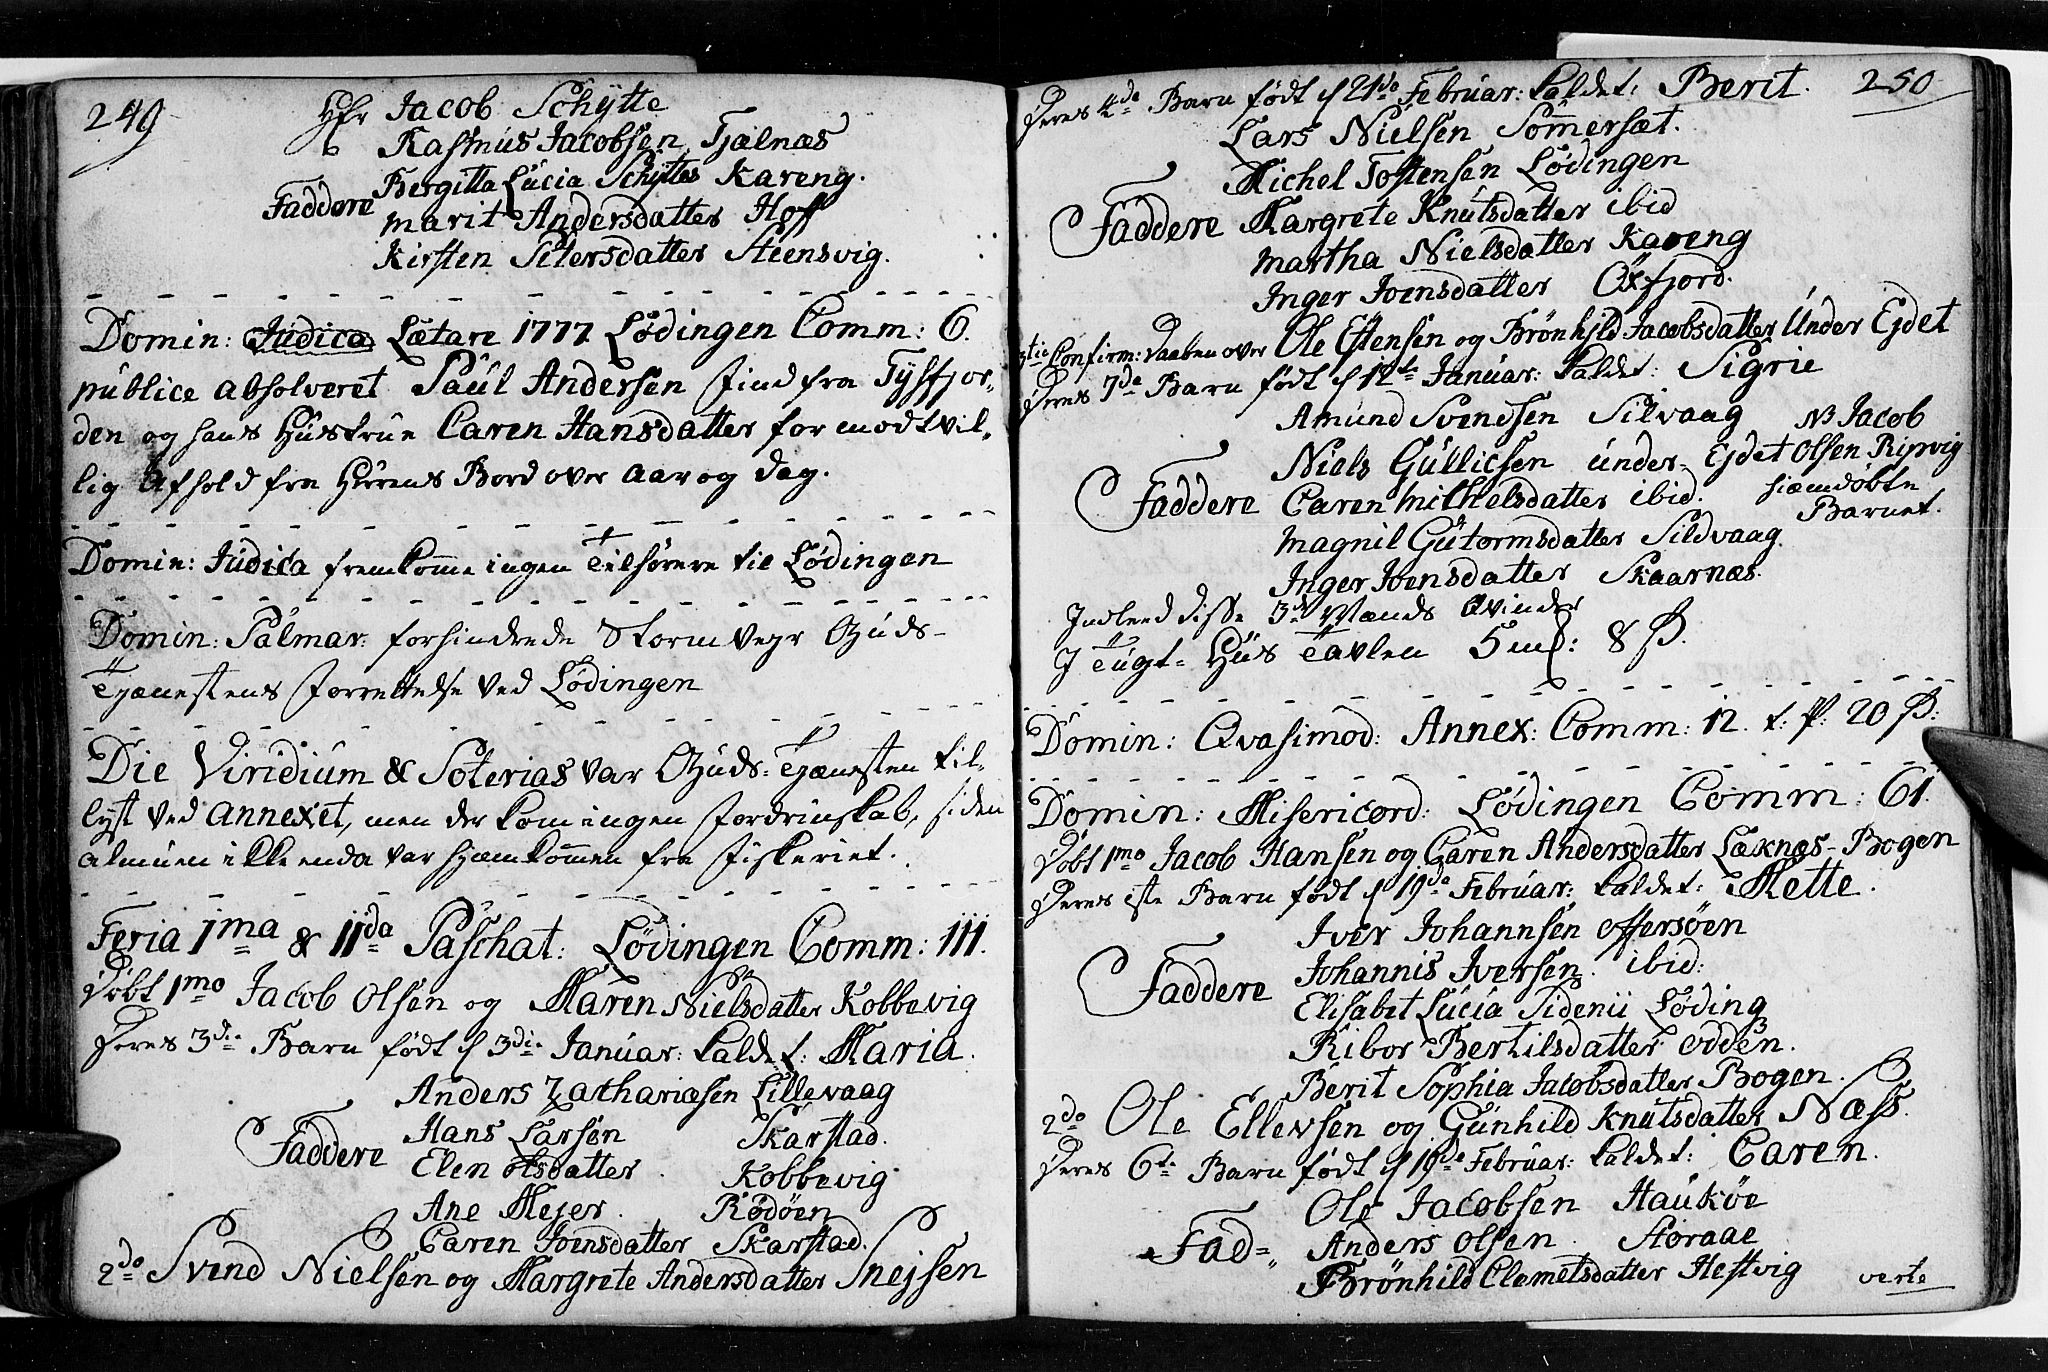 249
Hr Jacob Schytte
Rasmus Jacobsen Tjælnæs
Bergitta Lucia Schyttes Kareng.
Faddere
Marit Andersdatter Hoff
Kirsten Petersdatter Steensvig.
Domin: Judica Lætare 1777 Lødingen Comm: 6.
publice absolveret Paul Andersen Find fra Tysfjor-
den og hans Hustrue Caren Hansdatter for modtvil-
lig Afhold fra Herrens Bord over Aar og dag.
Domin: Judica fremkomme ingen Tilhørere til Lødingen
Domin: Palmar: forhindrede Storm Vejr Guds-
Tjænestens Forrettelse ved Lødingen
Die Viridium & Soterias var Guds-Tjænesten til-
lyst ved Annexet, men der kom ingen Fordrinskab, siden
Almuen ikke enda var hjemkommen fra Fiskeriet.
Feria 1ma & 11da Paschat: Lødingen Comm: 111.
Døbt 1mo Jacob Olsen og Maren Nielsdatter Kobbevig
Deres 3die Barn født d 3die Januar: kaldet: Maria.
Anders Zachariæsen Lillevaag
Faddere
Hans Larsen Skarstad.
Elen Olsdatter Kobbevig
Ane Mejer Rødøen
Caren Joensdatter Skarstad.
2do Svend Nielsen og Margrete Andersdatter Snejsen
250
Deres 4de Barn født d 21de Februar: kaldet: Berit.
Lars Nielsen Sommersæt.
Michel Tostensen Lødingen
Faddere Margrete Knutsdatter ibid
Martha Nielsdatter Kareng
Inger Joensdatter Oxfjord.
3tie Confirm: Daaben over Ole Estensen og Brønhild Jacobsdatter Under Ejdet
Deres 7de Barn født d 12te Januar: kaldet: Sigrie
Amund Svendsen Silvaag
Niels Gullicsen under Ejdet
Faddere Caren Michelsdatter ibid.
Magnil Gutormsdatter Sildvaag
Inger Joensdatter Skaarnæs.
NB Jacob
Olsen Ripvig
hiemdøbte
Barnet.
Indleed disse 3de Mænds Qvinder
I Tugt-Huus Tavlen 5 mk: 8 ß.
Domin: Qvasimod: Annex: Comm: 12. t: P: 20 ß:
Domin: Misericord: Lødingen Comm: 61.
Døbt 1mo Jacob Hansen og Caren Andersdatter Læknæs-Bogen
Deres 1ste Barn født d 19de Februar: kaldet: Mette.
Iver Johannsen Offersøen
Johannis Iversen ibid:
Faddere
Elisabet Lucia Sidenii Løding
Ribor Bertilsdatter Odden.
Berit Sophia Jacobsdatter Bogen.
2do Ole Ellevsen og Gunhild Knutsdatter Næss.
Deres 6te Barn født d 19de Februar: kaldet: Caren.
Ole Jacobsen Haukøe
Fad=
Anders Olsen Storaae
Brønhild Clemetsdatter Hestvig
verte